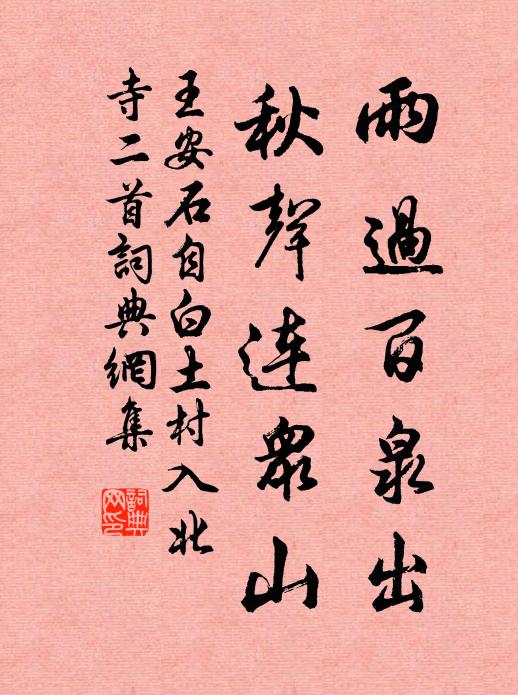 雨過百泉出
秋聲連衆山
王安石自白土村入北
寺二首詞典網集
詞典网印